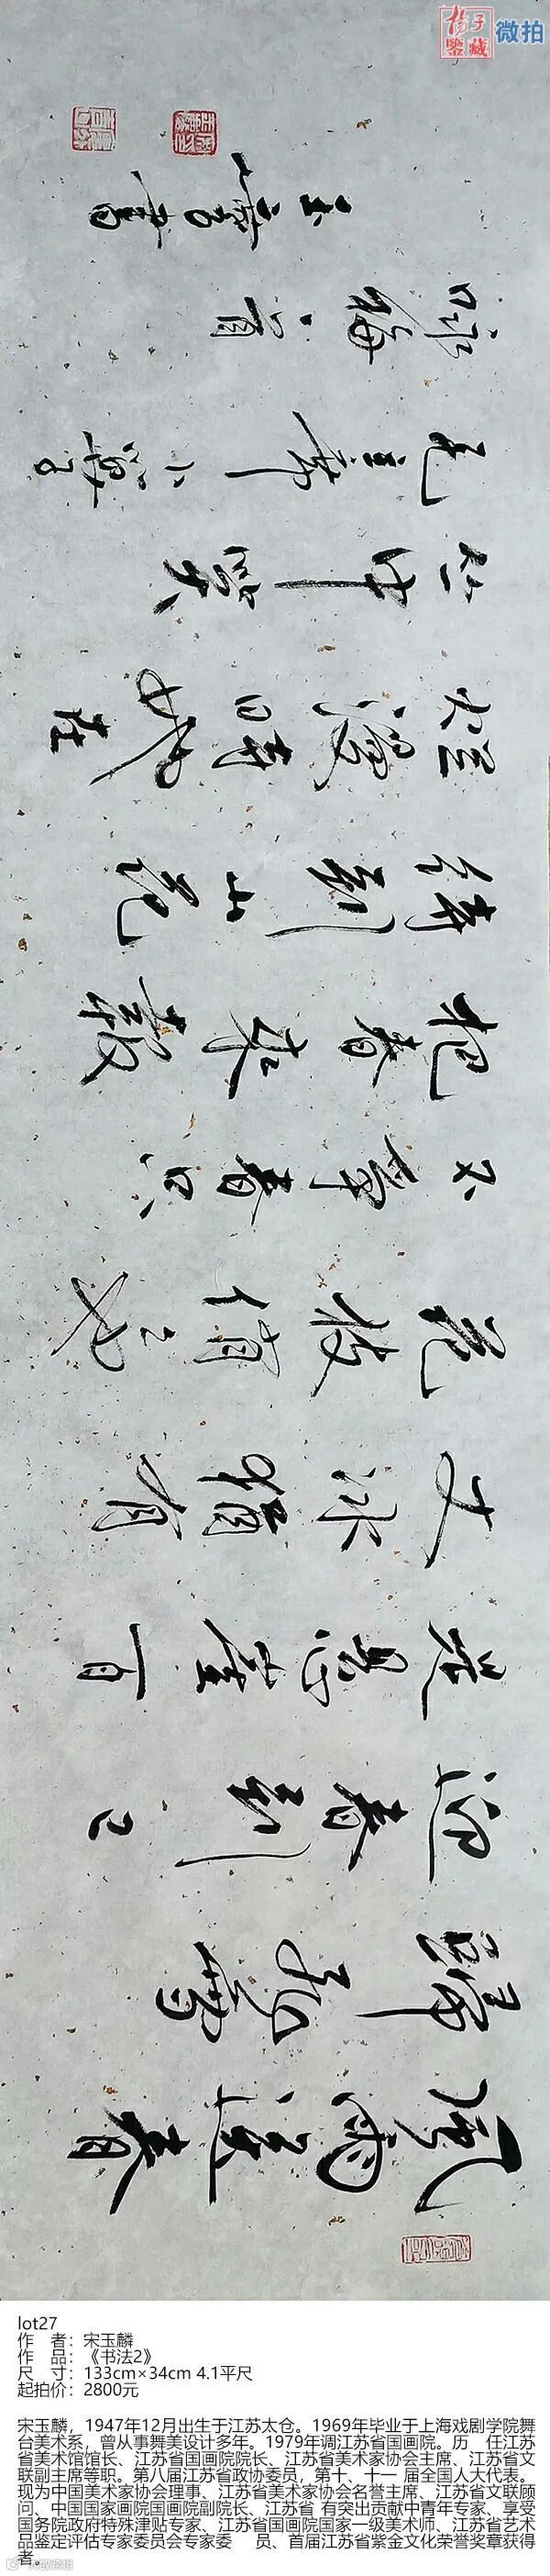 杨子
鉴藏
微拍
風雨送春
歸飛雪
迎春到已
是懸崖百
丈冰猶有
花枝俏々也
不爭春只
把春來報
待到山花
爛漫時她在
丛中笑
毛主席卜算子
咏梅一首
玉麐書
lot27
作 者：宋玉麟
作 品：《书法2》
尺 寸：133cm×34cm 4.1平尺
起拍价：2800元
宋玉麟，1947年12月出生于江苏太仓。1969年毕业于上海戏剧学院舞
台美术系，曾从事舞美设计多年。1979年调江苏省国画院。历 任江苏
省美术馆馆长、江苏省国画院院长、江苏省美术家协会主席、江苏省文
联副主席等职。第八届江苏省政协委员，第十、十一 届全国人大代表。
现为中国美术家协会理事、江苏省美术家协会名誉主席、江苏省文联顾
问、中国国家画院国画院副院长、江苏省 有突出贡献中青年专家、享受
国务院政府特殊津贴专家、江苏省国画院国家一级美术师、江苏省艺术
品鉴定评估专家委员会专家委 员、首届江苏省紫金文化荣誉奖章获得
者。